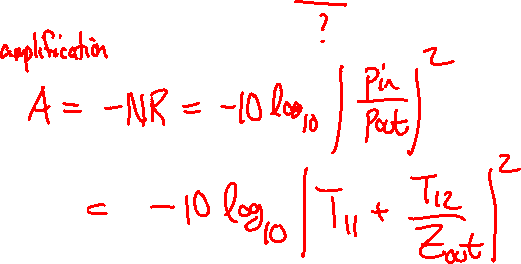 ?
amplification
A = -NR = -10 log₁₀ |Pin/Pout|²
= -10 log₁₀ |T₁₁ + T₁₂/Zout|²